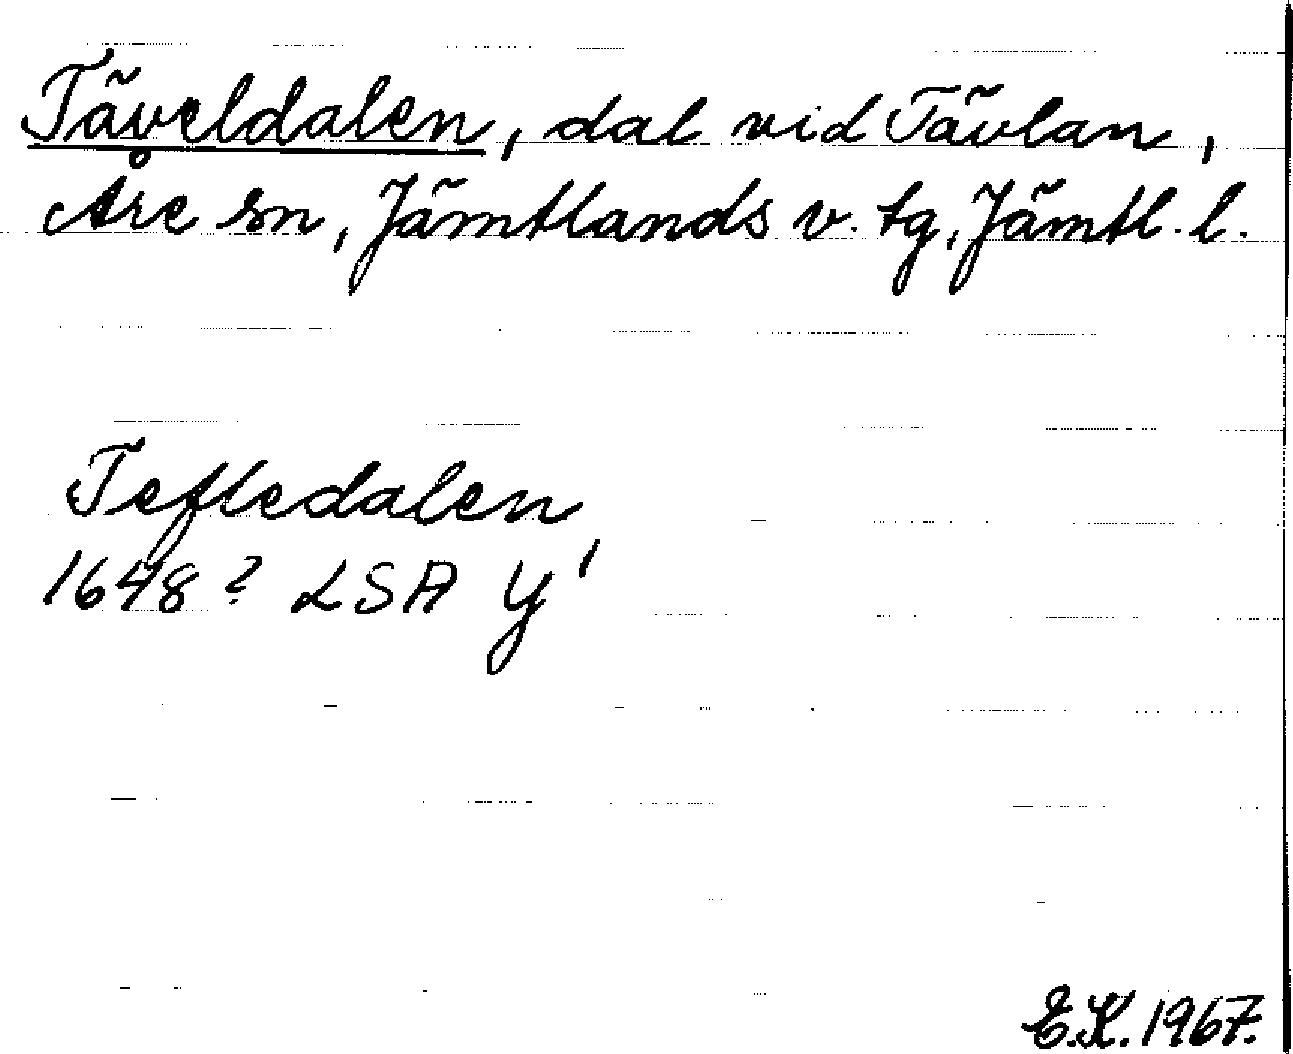 Täveldalen, dal vid Tävlan,
Åre sn, Jämtlands v. tg, Jämtl. l.
Tefledalen
1648? LSA Y'
E.K. 1967.